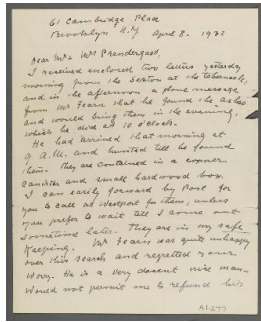 61 Cambridge Place
Brooklyn N.Y. April 8 - 193
Dear Mr & Mrs Prendergast,
I received enclosed two letters yesterday
morning from the Sexton at the Tabernacle,
and in the afternoon a phone message
from Mr Fearn that he found the ashes
and would bring them in the evening,
which he did at 10 o'clock.
He had arrived that morning at
9 A.M. and hunted till he found
them. They are contained in a copper
canister and small hardwood box.
I can easily forward by post for
you to call at Westport for them, unless
you prefer to wait till I come out
sometime later. They are in my safe
keeping. Mr Fearn was quite unhappy
over this search and regretted your
worry. He is a very decent nice man -
Would not permit me to refund his